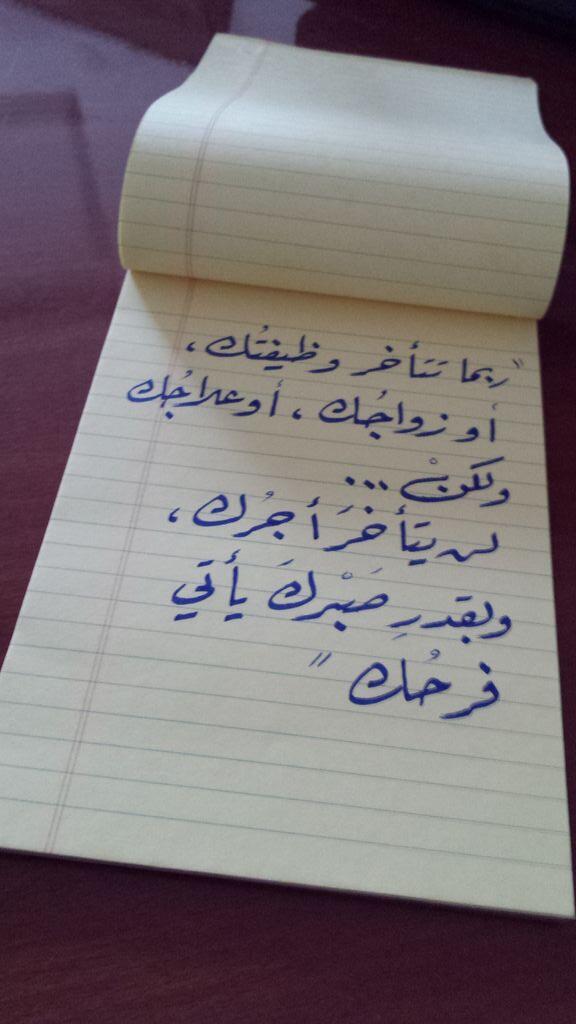 "ربما تتأخر وظيفتُك،
أو زواجُك، أو علاجُك
ولكنْ ...
لن يتأخرَ أجرُك،
وبقدرِ صَبْركَ يأتي
فرحُك"